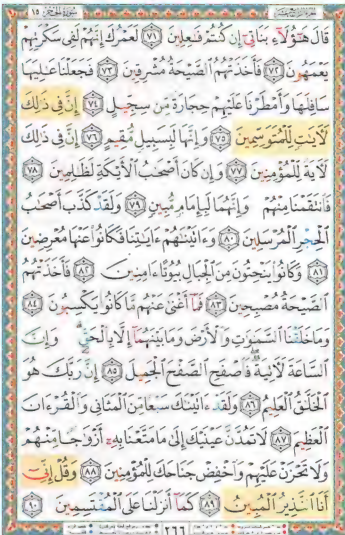 الجزء الرابع عشر سورة الحجر ١٥
قَالَ هَٰٓؤُلَآءِ بَنَاتِيٓ إِن كُنتُمْ فَٰعِلِينَ ٧١ لَعَمْرُكَ إِنَّهُمْ لَفِي سَكْرَتِهِمْ
يَعْمَهُونَ ٧٢ فَأَخَذَتْهُمُ ٱلصَّيْحَةُ مُشْرِقِينَ ٧٣ فَجَعَلْنَا عَٰلِيَهَا
سَافِلَهَا وَأَمْطَرْنَا عَلَيْهِمْ حِجَارَةً مِّن سِجِّيلٍ ٧٤ إِنَّ فِي ذَٰلِكَ
لَأٓيَٰتٍ لِّلْمُتَوَسِّمِينَ ٧٥ وَإِنَّهَا لَبِسَبِيلٍ مُّقِيمٍ ٧٦ إِنَّ فِي ذَٰلِكَ
لَأٓيَةً لِّلْمُؤْمِنِينَ ٧٧ وَإِن كَانَ أَصْحَٰبُ ٱلْأَيْكَةِ لَظَٰلِمِينَ ٧٨
فَٱنتَقَمْنَا مِنْهُمْ وَإِنَّهُمَا لَبِإِمَامٍ مُّبِينٍ ٧٩ وَلَقَدْ كَذَّبَ أَصْحَٰبُ
ٱلْحِجْرِ ٱلْمُرْسَلِينَ ٨٠ وَءَاتَيْنَٰهُمْ ءَايَٰتِنَا فَكَانُوا۟ عَنْهَا مُعْرِضِينَ
٨١ وَكَانُوا۟ يَنْحِتُونَ مِنَ ٱلْجِبَالِ بُيُوتًا ءَامِنِينَ ٨٢ فَأَخَذَتْهُمُ
ٱلصَّيْحَةُ مُصْبِحِينَ ٨٣ فَمَآ أَغْنَىٰ عَنْهُم مَّا كَانُوا۟ يَكْسِبُونَ ٨٤
وَمَا خَلَقْنَا ٱلسَّمَٰوَٰتِ وَٱلْأَرْضَ وَمَا بَيْنَهُمَآ إِلَّا بِٱلْحَقِّ وَإِنَّ
ٱلسَّاعَةَ لَأٓتِيَةٌ فَٱصْفَحِ ٱلصَّفْحَ ٱلْجَمِيلَ ٨٥ إِنَّ رَبَّكَ هُوَ
ٱلْخَلَّٰقُ ٱلْعَلِيمُ ٨٦ وَلَقَدْ ءَاتَيْنَٰكَ سَبْعًا مِّنَ ٱلْمَثَانِي وَٱلْقُرْءَانَ
ٱلْعَظِيمَ ٨٧ لَا تَمُدَّنَّ عَيْنَيْكَ إِلَىٰ مَا مَتَّعْنَا بِهِۦٓ أَزْوَٰجًا مِّنْهُمْ
وَلَا تَحْزَنْ عَلَيْهِمْ وَٱخْفِضْ جَنَاحَكَ لِلْمُؤْمِنِينَ ٨٨ وَقُلْ إِنِّيٓ
أَنَا ٱلنَّذِيرُ ٱلْمُبِينُ ٨٩ كَمَآ أَنزَلْنَا عَلَى ٱلْمُقْتَسِمِينَ ٩٠
٢٦٦